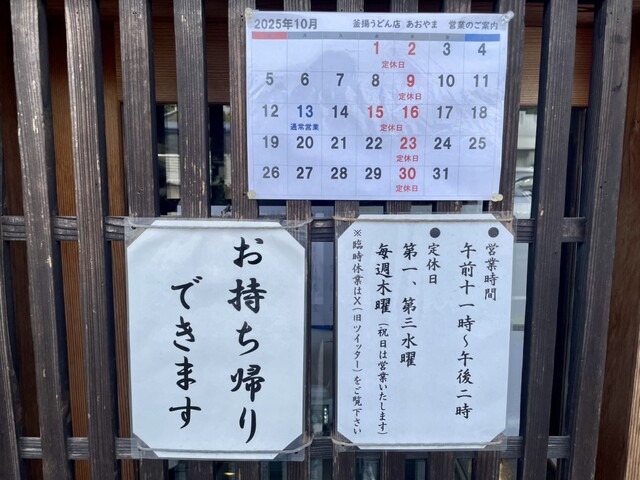 2025年10月 釜揚うどん店 あおやま 営業のご案内
1 2 3 4
定休日
5 6 7 8 9 10 11
定休日
12 13 14 15 16 17 18
通常営業 定休日
19 20 21 22 23 24 25
定休日
26 27 28 29 30 31
定休日
お持ち帰り
できます
●営業時間
午前十一時～午後二時
●定休日
第一、第三水曜
毎週木曜(祝日は営業いたします)
※臨時休業はX(旧ツイッター)をご覧下さい